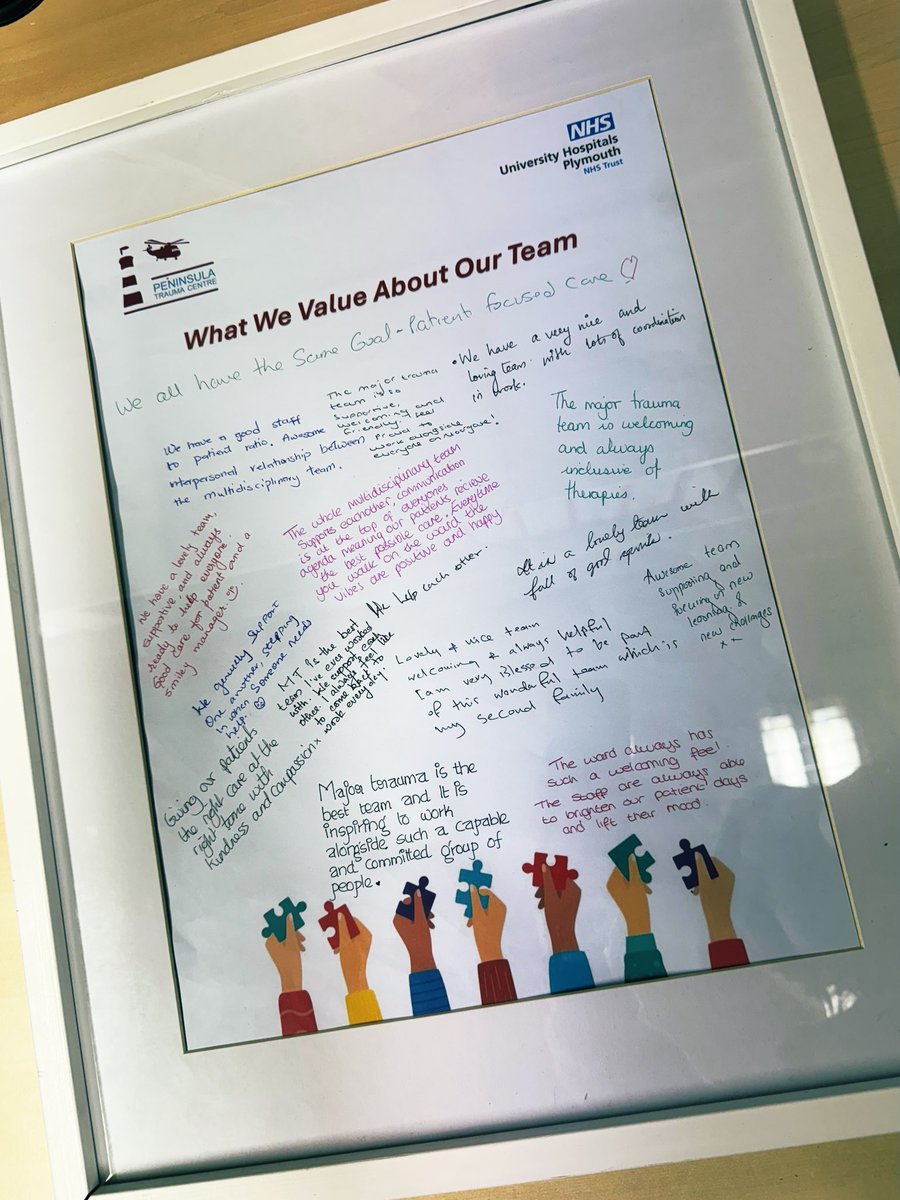 NHS
University Hospitals
Plymouth
NHS Trust
PENINSULA
TRAUMA CENTRE
What We Value About Our Team
We all have the Same Goal - Patient focused care ♡
We have a good staff
to patient ratio. Awesome
interpersonal relationship between
the multidisciplinary team.
The major trauma
team is so
supportive,
welcoming and
friendly.
Proud to
work alongside
everyone on Moorgate!
• We have a very nice and
loving team with lots of coordination
in work.
The major trauma
team is welcoming
and always
inclusive of
therapies.
We have a lovely team,
supportive, and always
ready to help everyone.
Good care for patient and a
smiley manager.
The whole multidisciplinary team
supports eachother, communication
is at the top of everyones
agenda meaning our patients recieve
the best possible care. Everytime
you walk on the ward the
vibes are positive and happy
We help each other.
It is a lovely team with
full of good
Awesome team
supporting and
focusing on new
learning &
new challenges
xx
We genuinely support
one another, stepping
in when someone needs
help.
MT is the best
team I've ever worked
with. We support each
other. I always feel like
to come
work everyday!
Lovely & nice team
welcoming & always helpful
I am very Blessed to be part
of this wonderful team which is
my second family
Giving our patients
the right care at the
right time with
kindness and compassion x
Major trauma is the
best team and it is
inspiring to work
alongside such a capable
and committed group of
people.
The ward always has
such a welcoming feel.
The staff are always able
to brighten our patient days
and lift their mood.